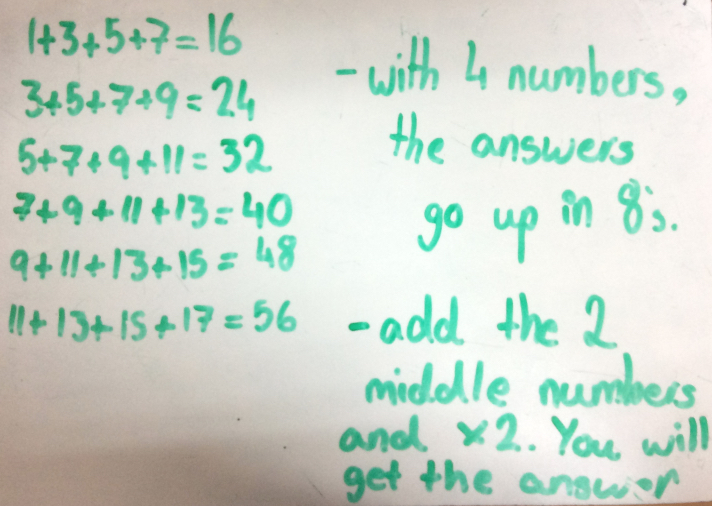 1+3+5+7=16
3+5+7+9=24
5+7+9+11=32
7+9+11+13=40
9+11+13+15=48
11+13+15+17=56
-with 4 numbers,
the answers
go up in 8's.
-add the 2
middle numbers
and x2. You will
get the answer